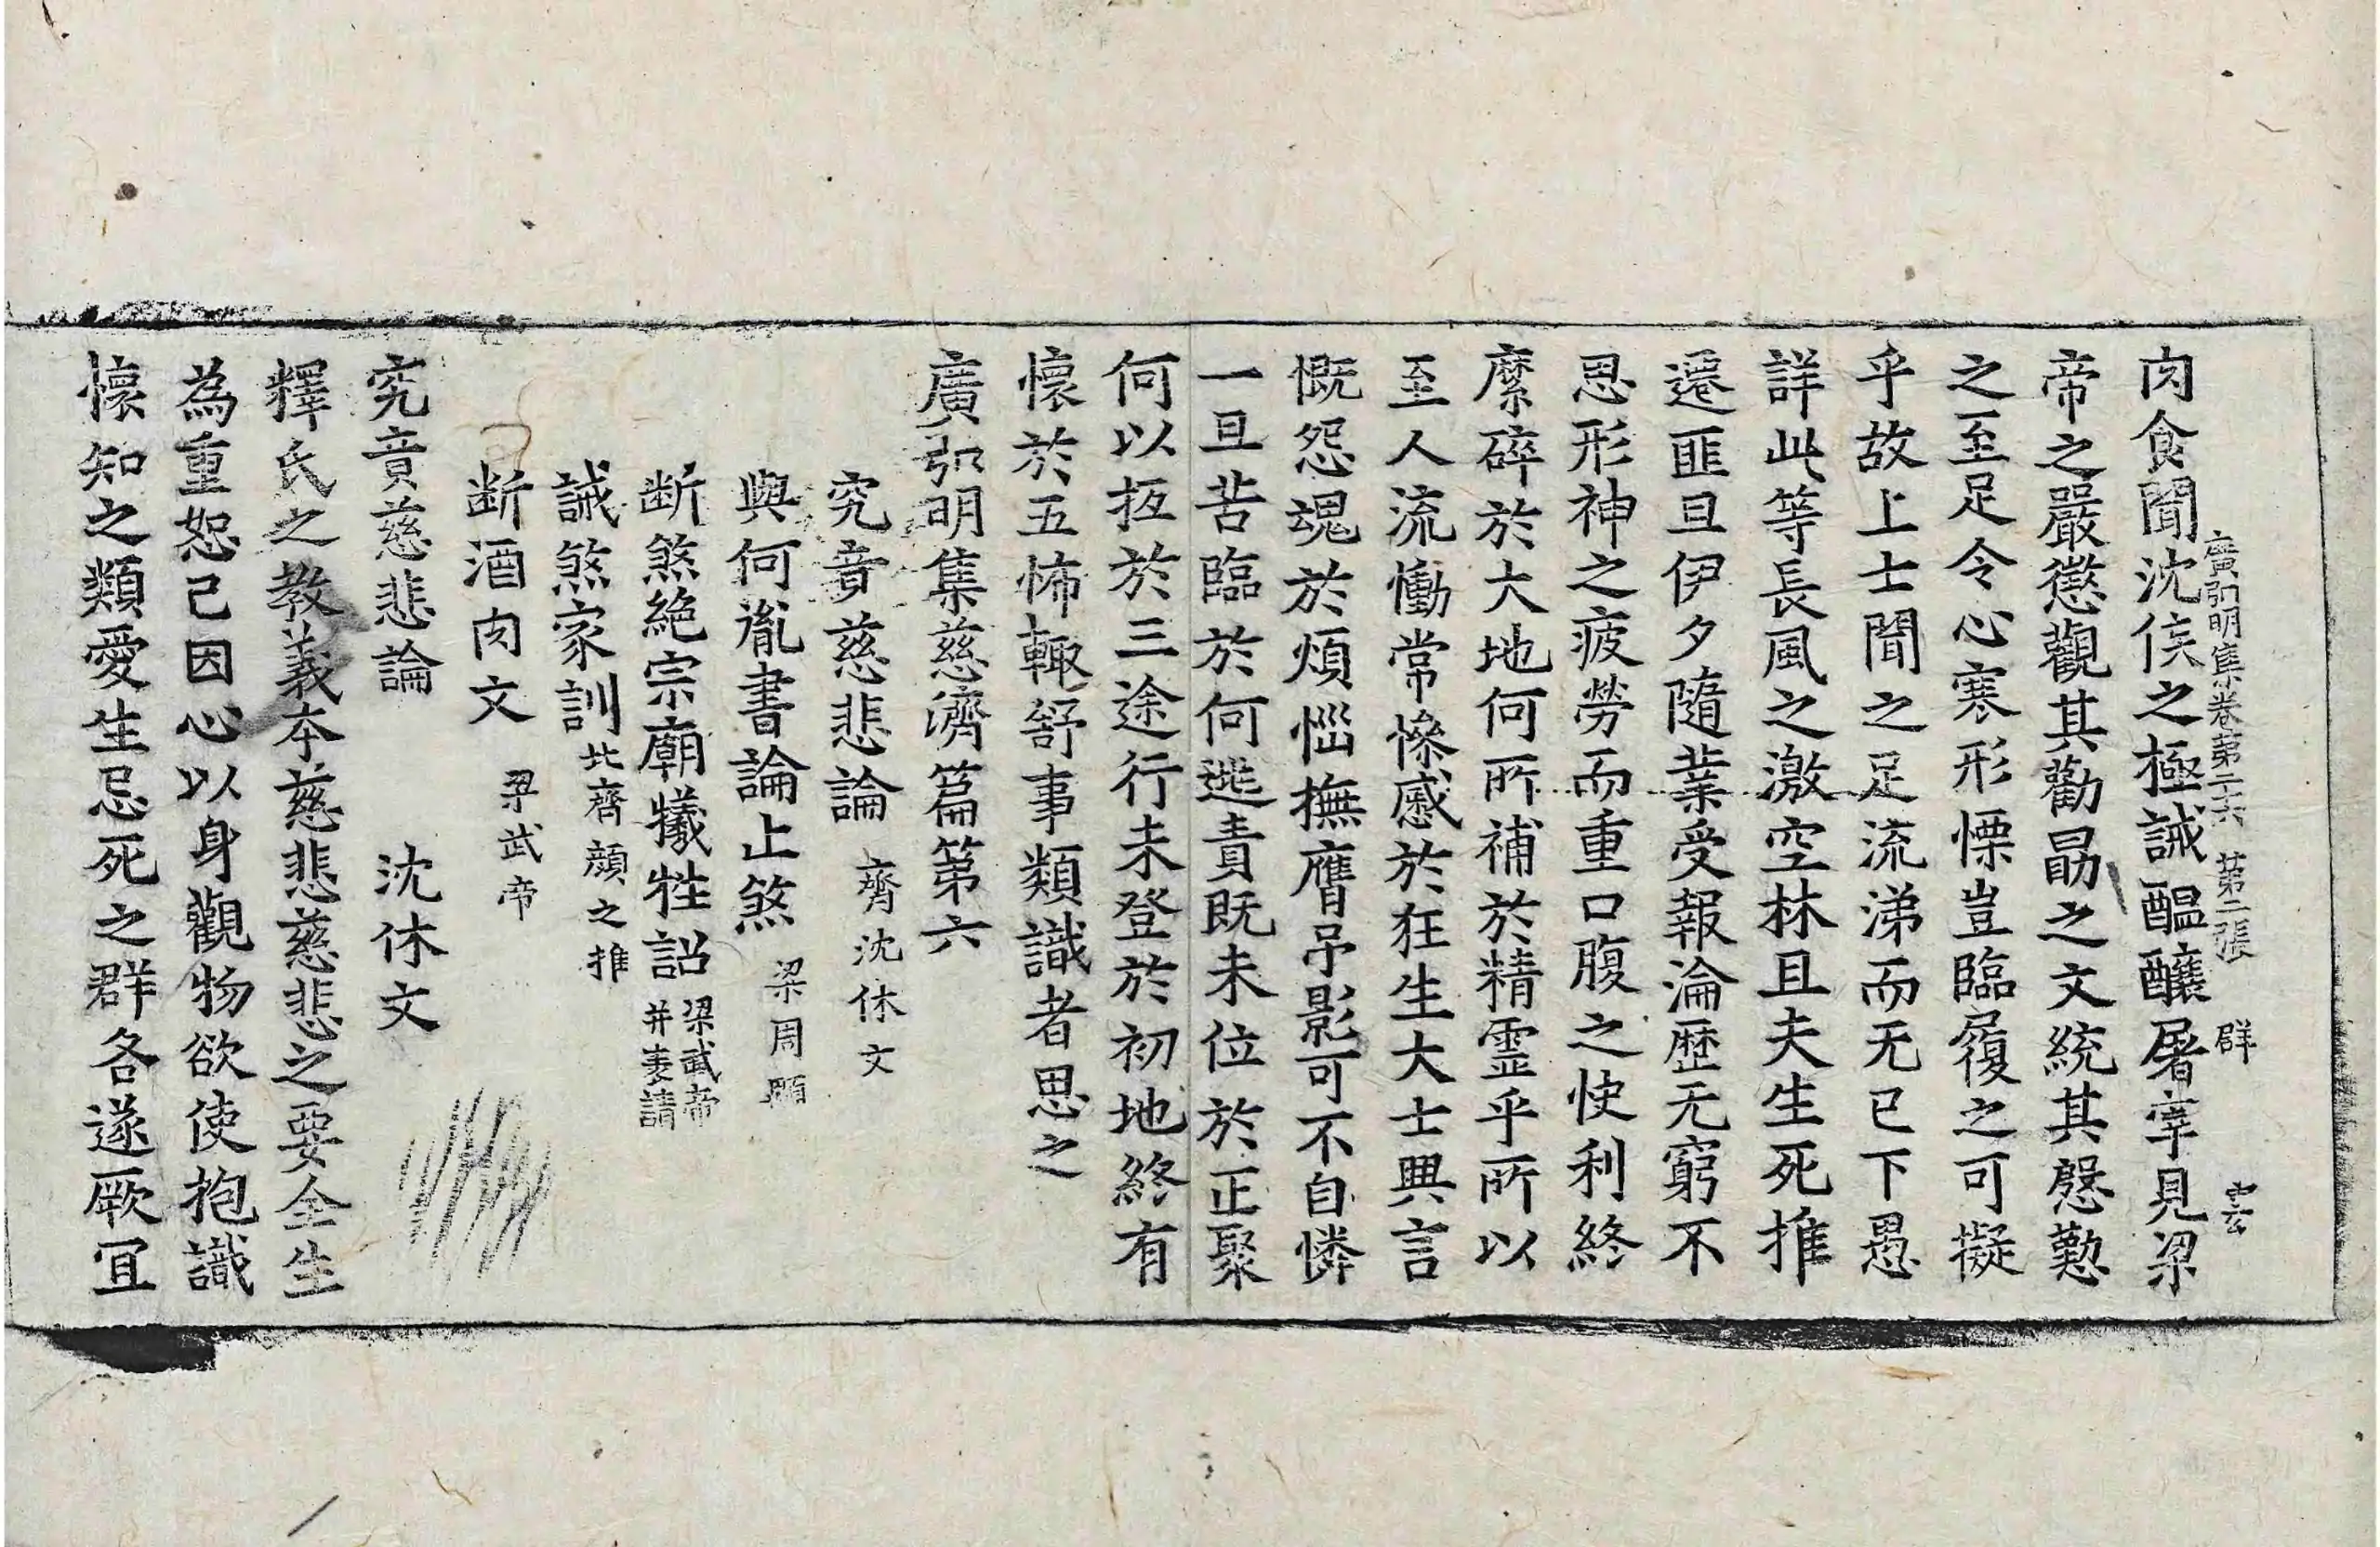 廣弘明集卷第二六 第二張 群 玄
肉食聞沈侯之極誡醞釀屠宰見梁
帝之嚴懲觀其勸勗之文統其慇懃
之至足令心寒形慄豈臨履之可擬
乎故上士聞之足流涕而无已下愚
詳此等長風之激空林且夫生死推
遷匪旦伊夕隨業受報淪歷无窮不
思形神之疲勞而重口腹之快利終
縻碎於大地何所補於精霊乎所以
至人流慟常慘慼於狂生大士興言
慨怨魂於煩惱撫膺弔影可不自憐
一旦苦臨於何逃責既未位於正聚
何以抵於三途行未登於初地終有
懷於五怖輙舒事類識者思之
廣弘明集慈濟篇第六
究竟慈悲論 齊沈休文
與何胤書論止煞 梁周顒
断煞絕宗廟犧牲詔 梁武帝并表請
誡煞家訓 北齊顏之推
断酒肉文 梁武帝
究竟慈悲論 沈休文
釋氏之教義本慈悲慈悲之要全生
為重恕己因心以身觀物欲使抱識
懷知之類愛生忌死之群各遂厥冝